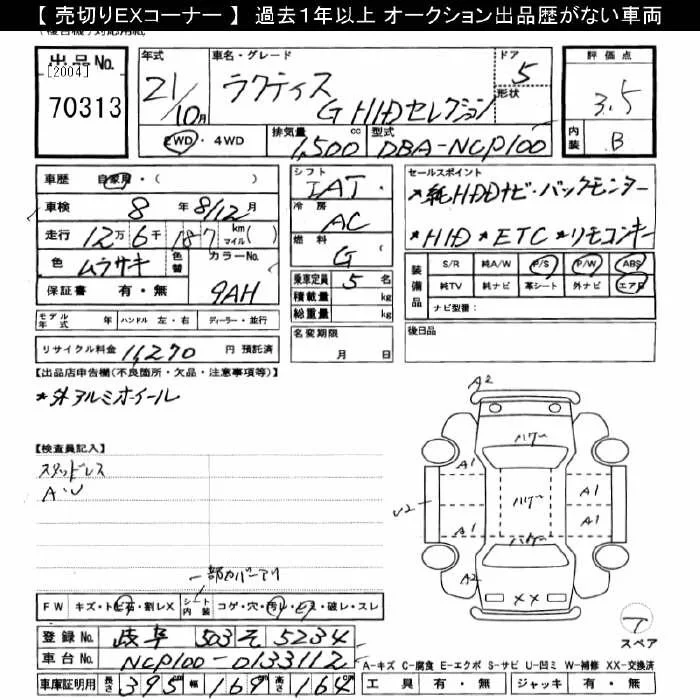 【 売切りEXコーナー 】 過去１年以上 オークション出品歴がない車両
出品No.
[2004]
70313
年式
21/10月
車名・グレード
ラクティス
G HIDセレクション
ドア
5
形状
評価点
3.5
内装
B
2WD ・ 4WD
排気量
1,500 cc
型式
DBA-NCP100
車歴 自家用・( )
車検 8 年 8/12 月
走行 12万 6千 187 km マイル ( )
色 ムラサキ 色替 カラーNo.
9AH
保証書 有・無
モデル年式 年 ハンドル 左・右 ディーラー・並行
リサイクル料金 11,270 円 預託済
シフト
IAT
冷房
AC
燃料
G (
乗車定員 5 名
積載量 kg
総重量 kg
名変期限
月 日
セールスポイント
*純HDDナビ・バックモニター
*HID *ETC *リモコンキー
装備品
S/R 純A/W P/S P/W ABS
純TV 純ナビ 革シート 外ナビ エアB
ナビ型番：
後日品
【出品店申告欄(不良箇所・欠品・注意事項等)】
*外アルミホイール
【検査員記入】
スタッドレス
A・U
一部カバーアリ
FW キズ・トビ石・割レX シート内装 コゲ・穴・汚レ・ビス・破レ・スレ
登録No. 岐阜 503 そ 5234
車台No. NCP100-0133112
車庫証明用 長さ 395 幅 169 高さ 164
A2
A1
A1
U2
A1
A1
A2
XX
スペア
A-キズ C-腐食 E-エクボ S-サビ U-凹ミ W-補修 XX-交換済
工具 有・無 ジャッキ 有・無